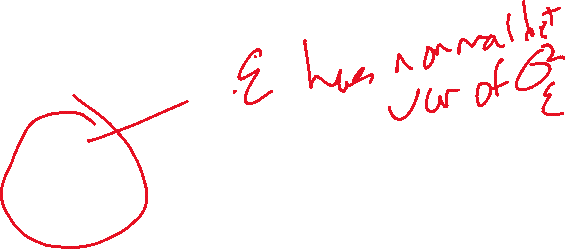 ε has normal dist
var of σ²_ε